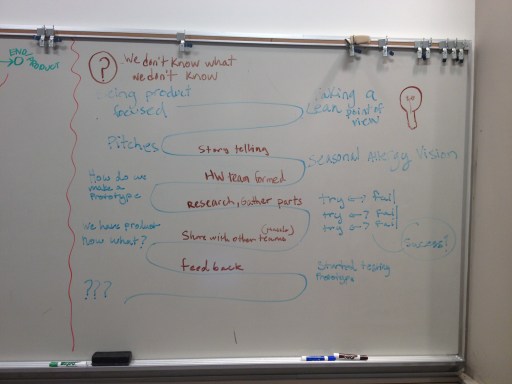 ?
We don't know what
we don't know
Being product
focused
Taking a
Lean point of
view
Pitches
Story telling
Seasonal Allergy Vision
HW team formed
How do we
make a
Prototype
Research, Gather parts
try → ? fail
try → ? fail
try → ? fail
Success!
We have product
now what?
Share with other teams
feedback
Started testing
Prototype
???